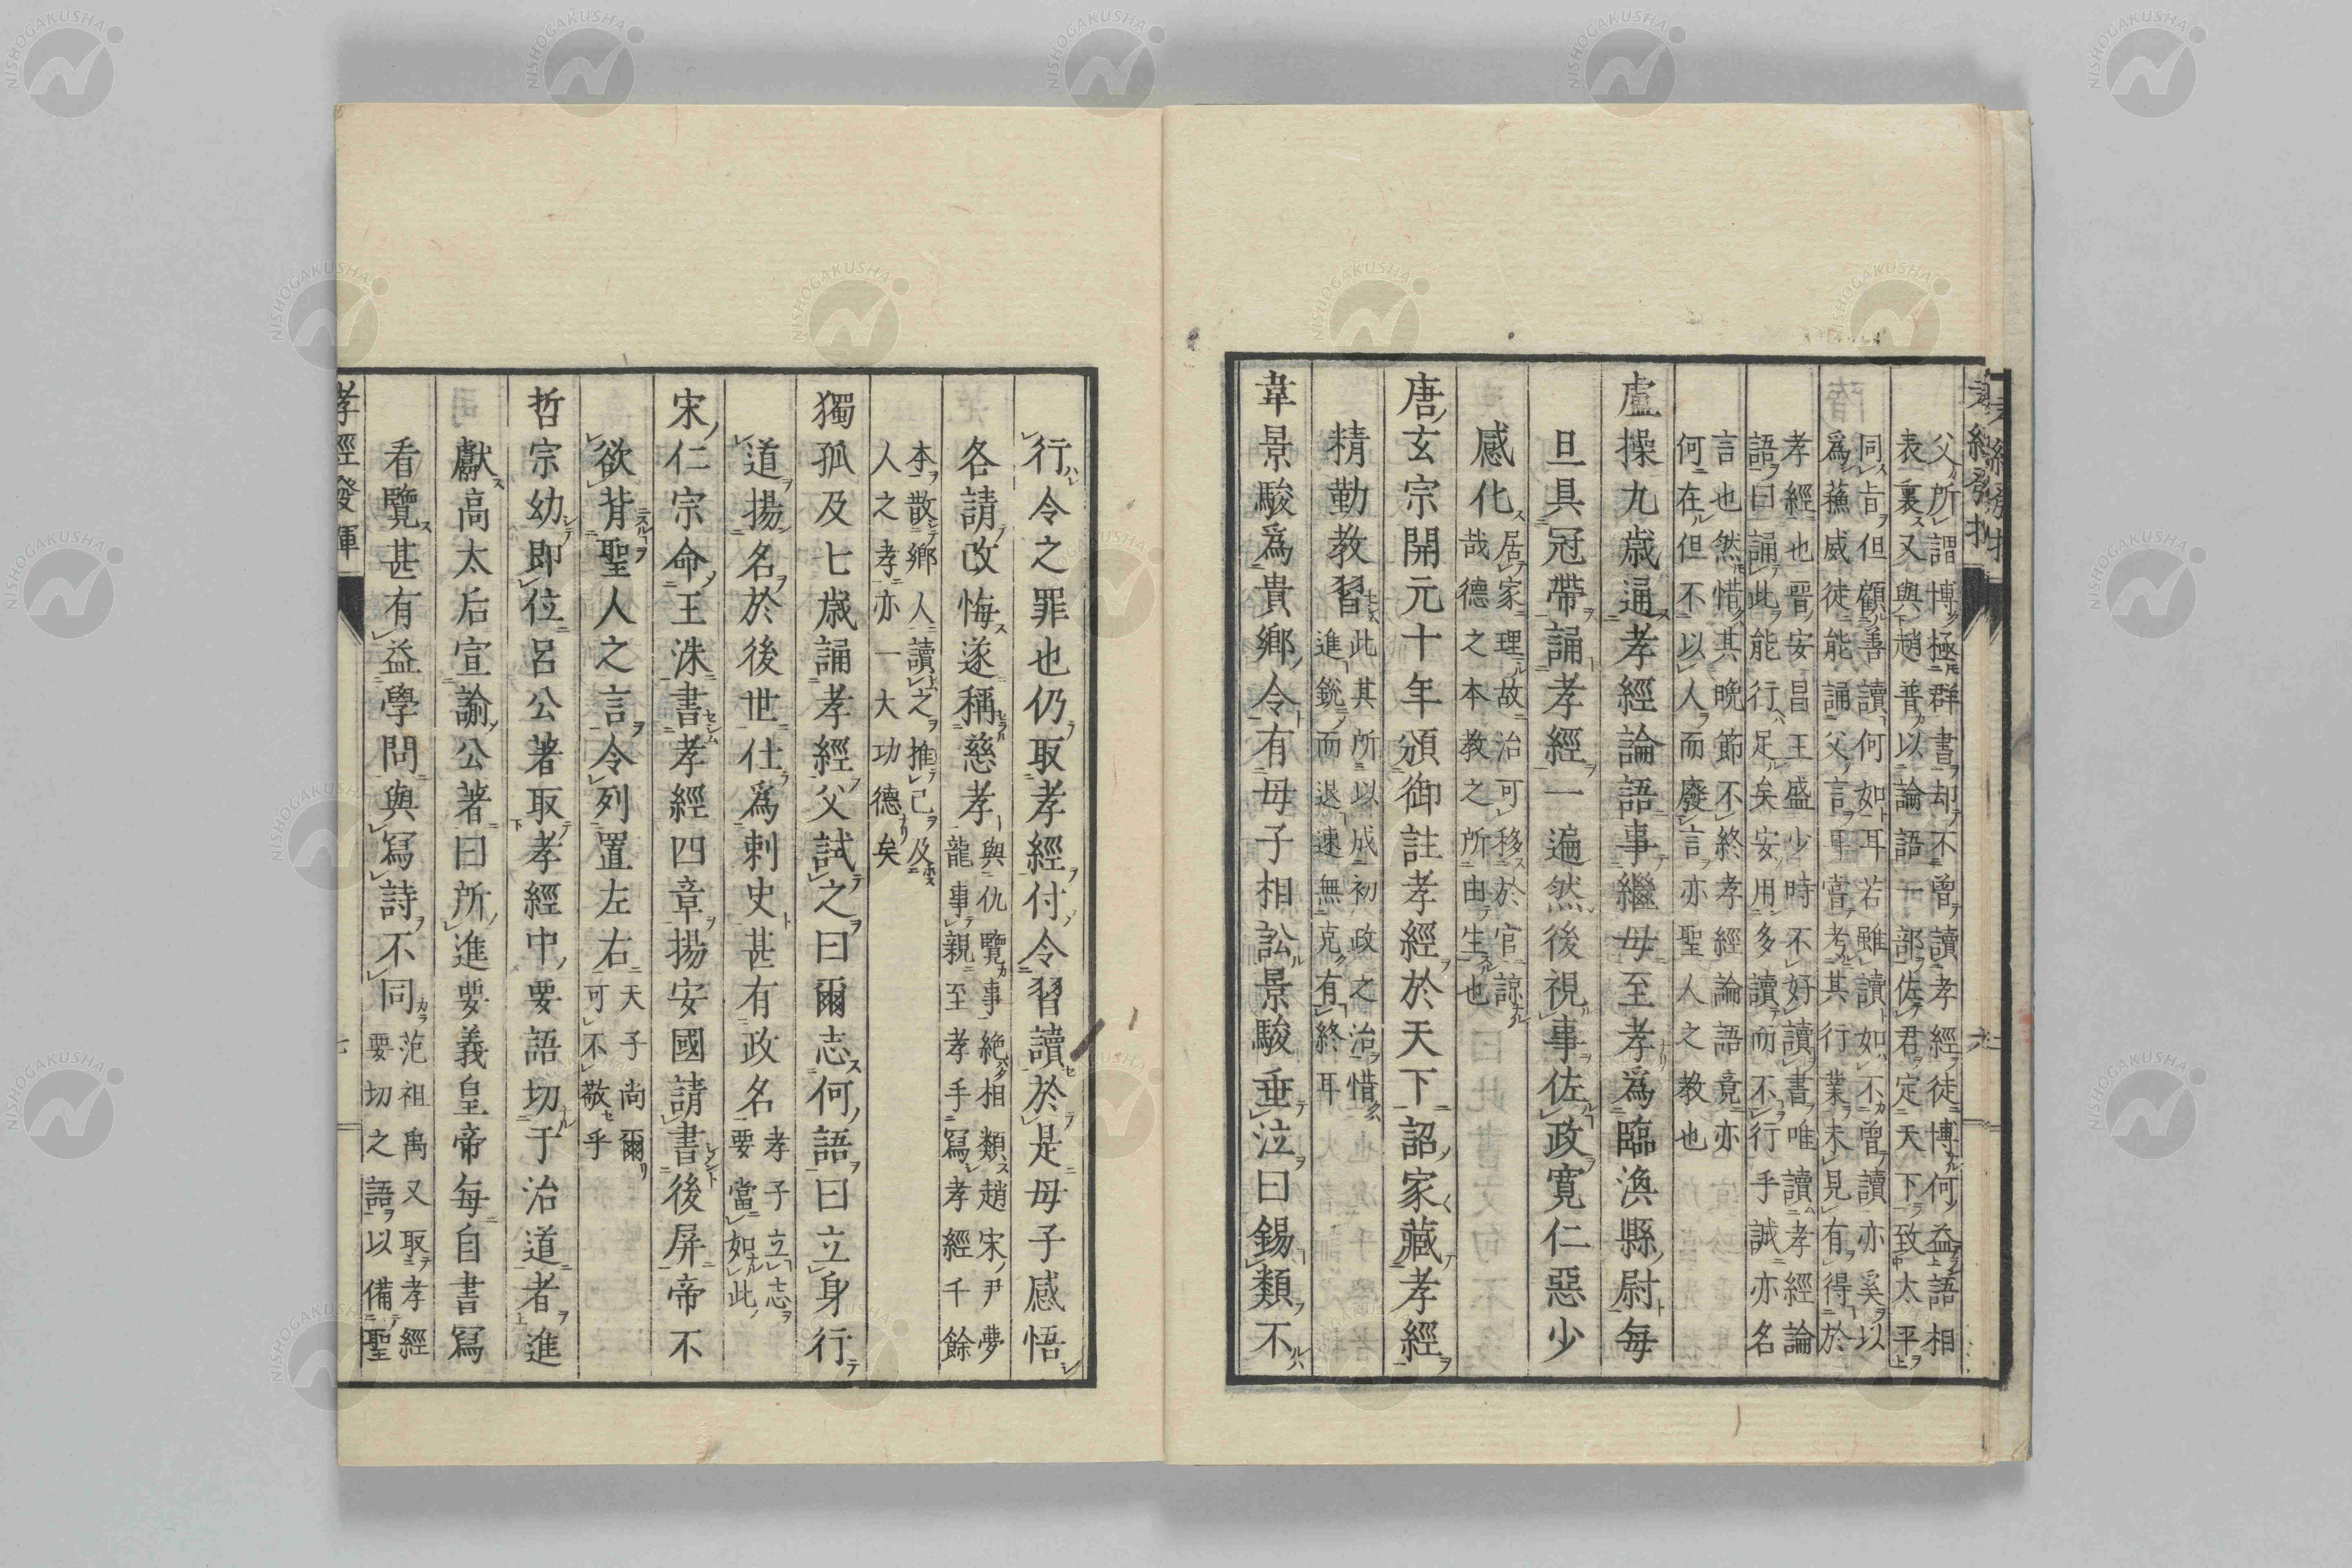 父所謂博極群書却不曽讀孝經徒博何益語相
表裏又與趙普以論語一部佐君定天下致太平
同旨但顧善讀何如耳若雖讀如不曽讀亦奚以
爲蘓威徒能誦父言耳嘗考其行業未見有得於
孝經也晋安昌王盛少時不好讀書唯讀孝經論
語曰誦此能行足矣安用多讀而不行乎誠亦名
言也然惜其晩節不終孝經論語竟亦
何在但不以人而廢言亦聖人之教也
盧操九歳通孝經論語事繼母至孝爲臨渙縣尉每
旦具冠帶誦孝經一遍然後視事佐政寛仁惡少
感化
居家理故治可移於官諒
哉德之本教之所由生也
唐玄宗開元十年頒御註孝經於天下詔家藏孝經
精勤教習
此其所以成初政之治惜
進銳而退速無克有終耳
韋景駿爲貴鄉令有母子相訟景駿垂泣曰錫類不
行令之罪也仍取孝經付令習讀於是母子感悟
各請改悔遂稱慈孝
與仇覽事絶相類趙宋尹夢
龍事親至孝手寫孝經千餘
本散鄉人讀之推己及
人之孝亦一大功德矣
獨孤及七歳誦孝經父試之曰爾志何語曰立身行
道揚名於後世仕爲刺史甚有政名
孝子立志
要當如此
宋仁宗命王洙書孝經四章揚安國請書後屏帝不
欲背聖人之言令列置左右
天子尚爾
可不敬乎
哲宗幼即位呂公著取孝經中要語切于治道者進
獻高太后宣諭公著曰所進要義皇帝每自書寫
看覽甚有益學問與寫詩不同
范祖禹又取孝經
要切之語以備聖
孝經發揮